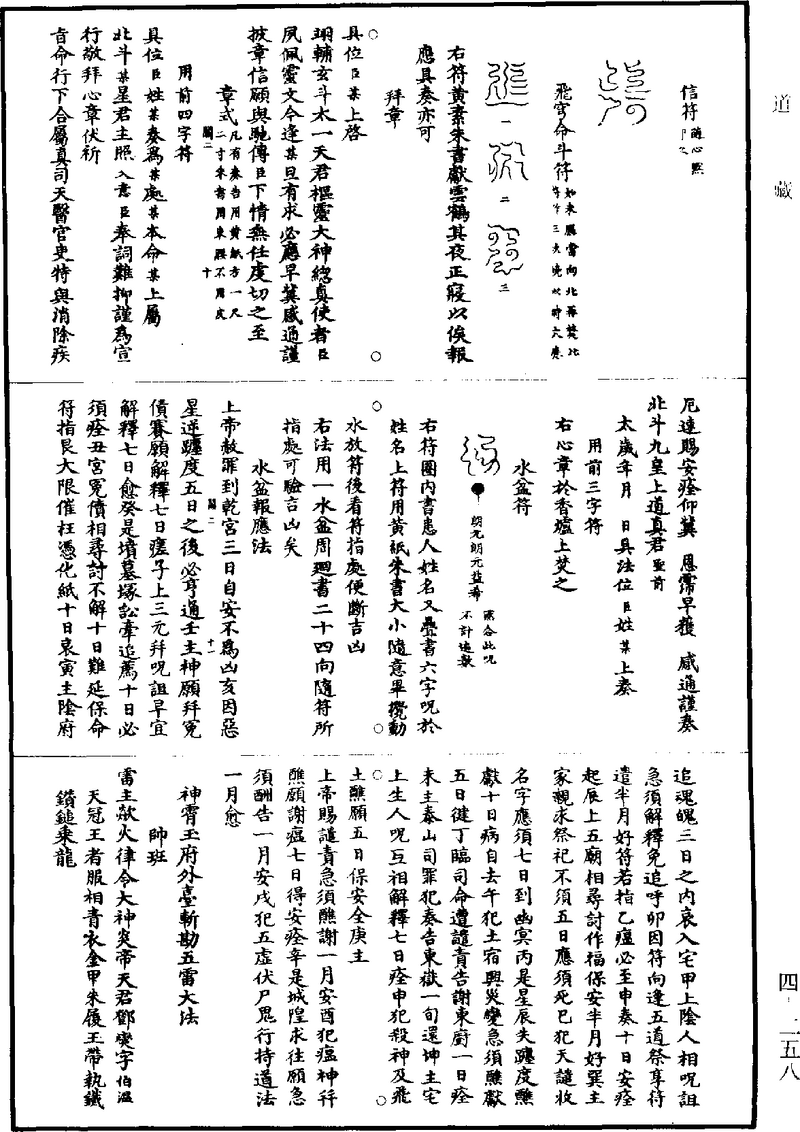 道藏
信符
飛穹命斗符
一 二 三
右符黃素朱書獻雲鶴其夜正寢以俟報
應具奏亦可
拜章
具位臣某上啓
翊輔玄斗太一天君樞靈大神總真使者臣
夙佩靈文今逢某旦有求必應早冀感通謹
披章信願與馳傳臣下情無任虔切之至
章式凡有奏告用黃紙方一尺
二寸朱書用東
用前四字符
具位臣姓某奏爲某處某本命某上屬
北斗某星君主照入意臣奉詞難抑謹爲宣
行敬拜心章伏祈
旨命行下合屬真司天醫官吏特與消除疾
厄速賜安痊仰冀 恩霈早獲 感通謹奏
北斗九皇上道真君聖前
太歲年月 日具法位臣姓某上奏
用前三字符
右心章於香爐上焚之
水盆符
右符圈內書患人姓名又疊書六字呪於
姓名上符用黃紙朱書大小隨意畢攪動
水放符後看符指處便斷吉凶
右法用一水盆周迴書二十四向隨符所
指處可驗吉凶矣
水盆報應法
上帝赦罪到乾宮三日自安不爲凶亥因惡
星逆躔度五日之後必亨通壬主神願拜冤
債賽願解釋七日瘥子上三元拜呪詛早宜
解釋七日愈癸是墳墓塚訟牽追薦十日必
須痊丑宮冤債相尋討不解十日難延保命
符指艮大限催枉憑化紙十日哀寅主陰府
追魂魄三日之內哀入宅甲上陰人相呪詛
急須解釋免追呼卯因符向逢五道祭享符
遣半月好符若指乙瘟必至申奏十日安痊
起辰上五廟相尋討作福保安半月好巽主
家親求祭祀不須五日應須死巳犯天譴收
名字應須七日到幽冥丙是星辰失躔度醮
獻十日病自去午犯土宿興災變急須醮獻
五日健丁臨司命遭譴責告謝東廚一日痊
未主泰山司罪犯奏告東嶽一旬還坤主宅
上生人呪互相解釋七日痊申犯殺神及飛
土醮願五日保安全庚主
上帝賜譴責急須醮謝一月安酉犯瘟神并
醮願謝瘟七日得安痊辛是城隍求往願急
須酬告一月安戌犯五虛伏尸鬼行持道法
一月愈
神霄玉府外臺斬勘五雷大法
帥班
雷主歘火律令大神炎帝天君鄧燮字伯溫
天冠王者服相青衣金甲朱履玉帶執鐵
鑽鎚乘龍
四‐二五八